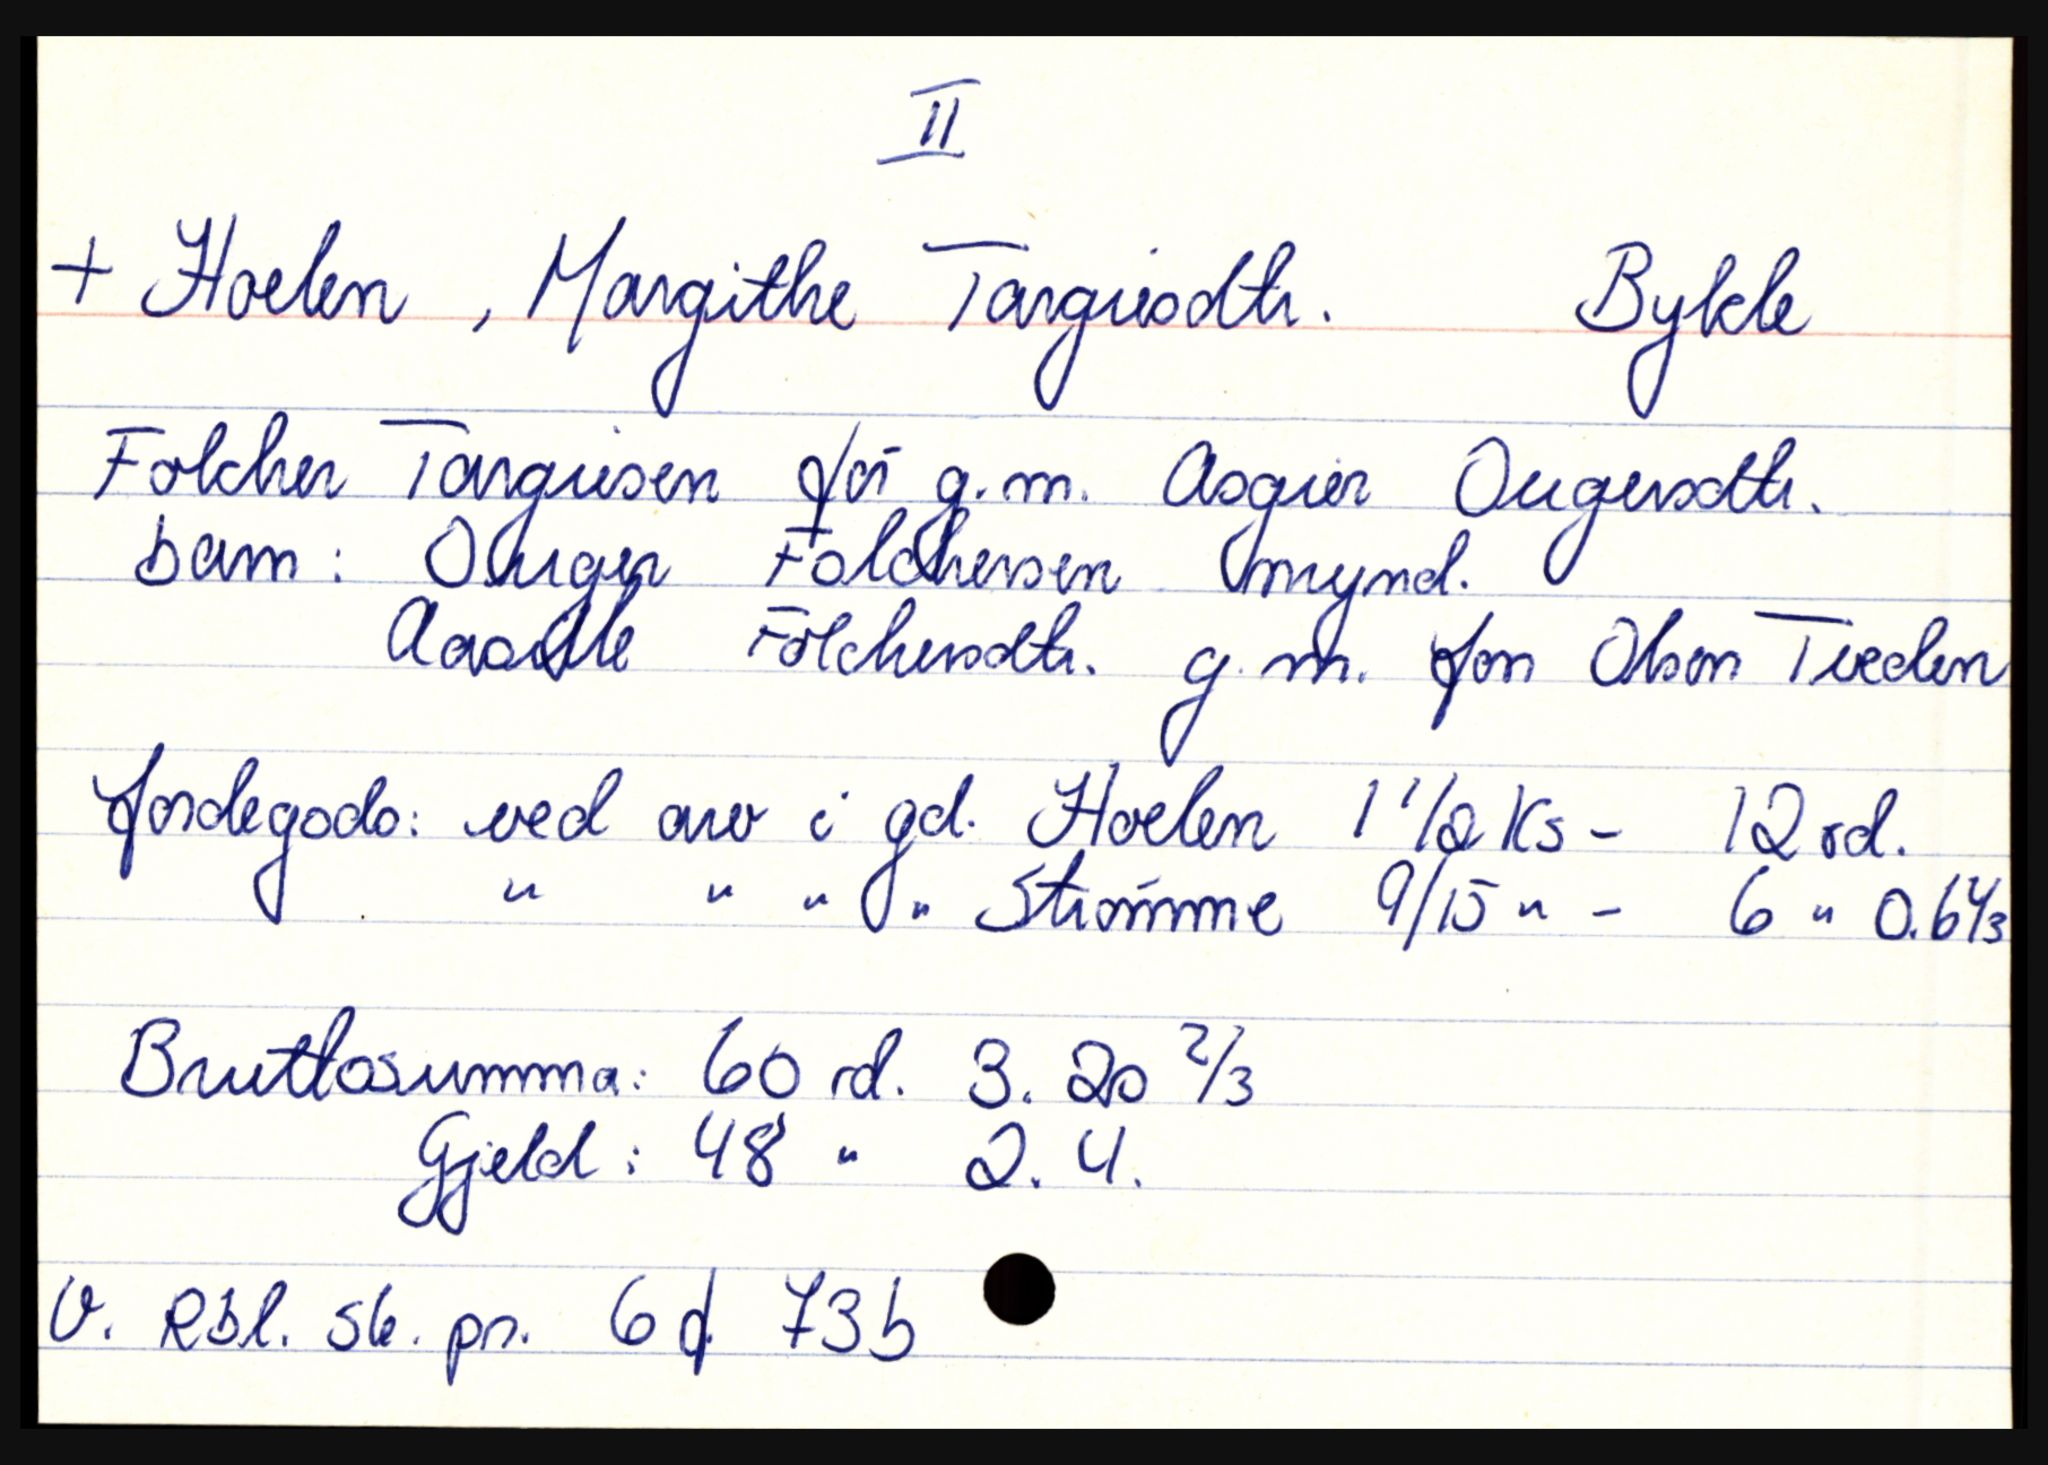 II
+ Hoelen, Margithe Targiesdtr. Bykle
Folcher Targiesen før g.m. Asgier Ougersdtr.
barn: Ouger Folchersen mynd.
Aasille Folchersdtr. g.m. Jon Olson Tveden
Jordegods: ved arv i gd. Hoelen 1 1/2 Ks - 12 rd.
" " " " Strømme 9/15 " - 6 " 0.6 4/3
Bruttosumma: 60 rd. 3. 20 2/3
Gjeld: 48 " 2. 4.
V. Rbl. sk. pr. 6 d 73b